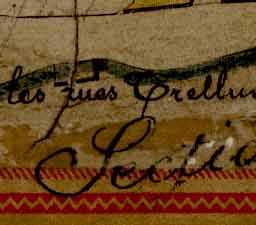 les rues Trellu
Sectio